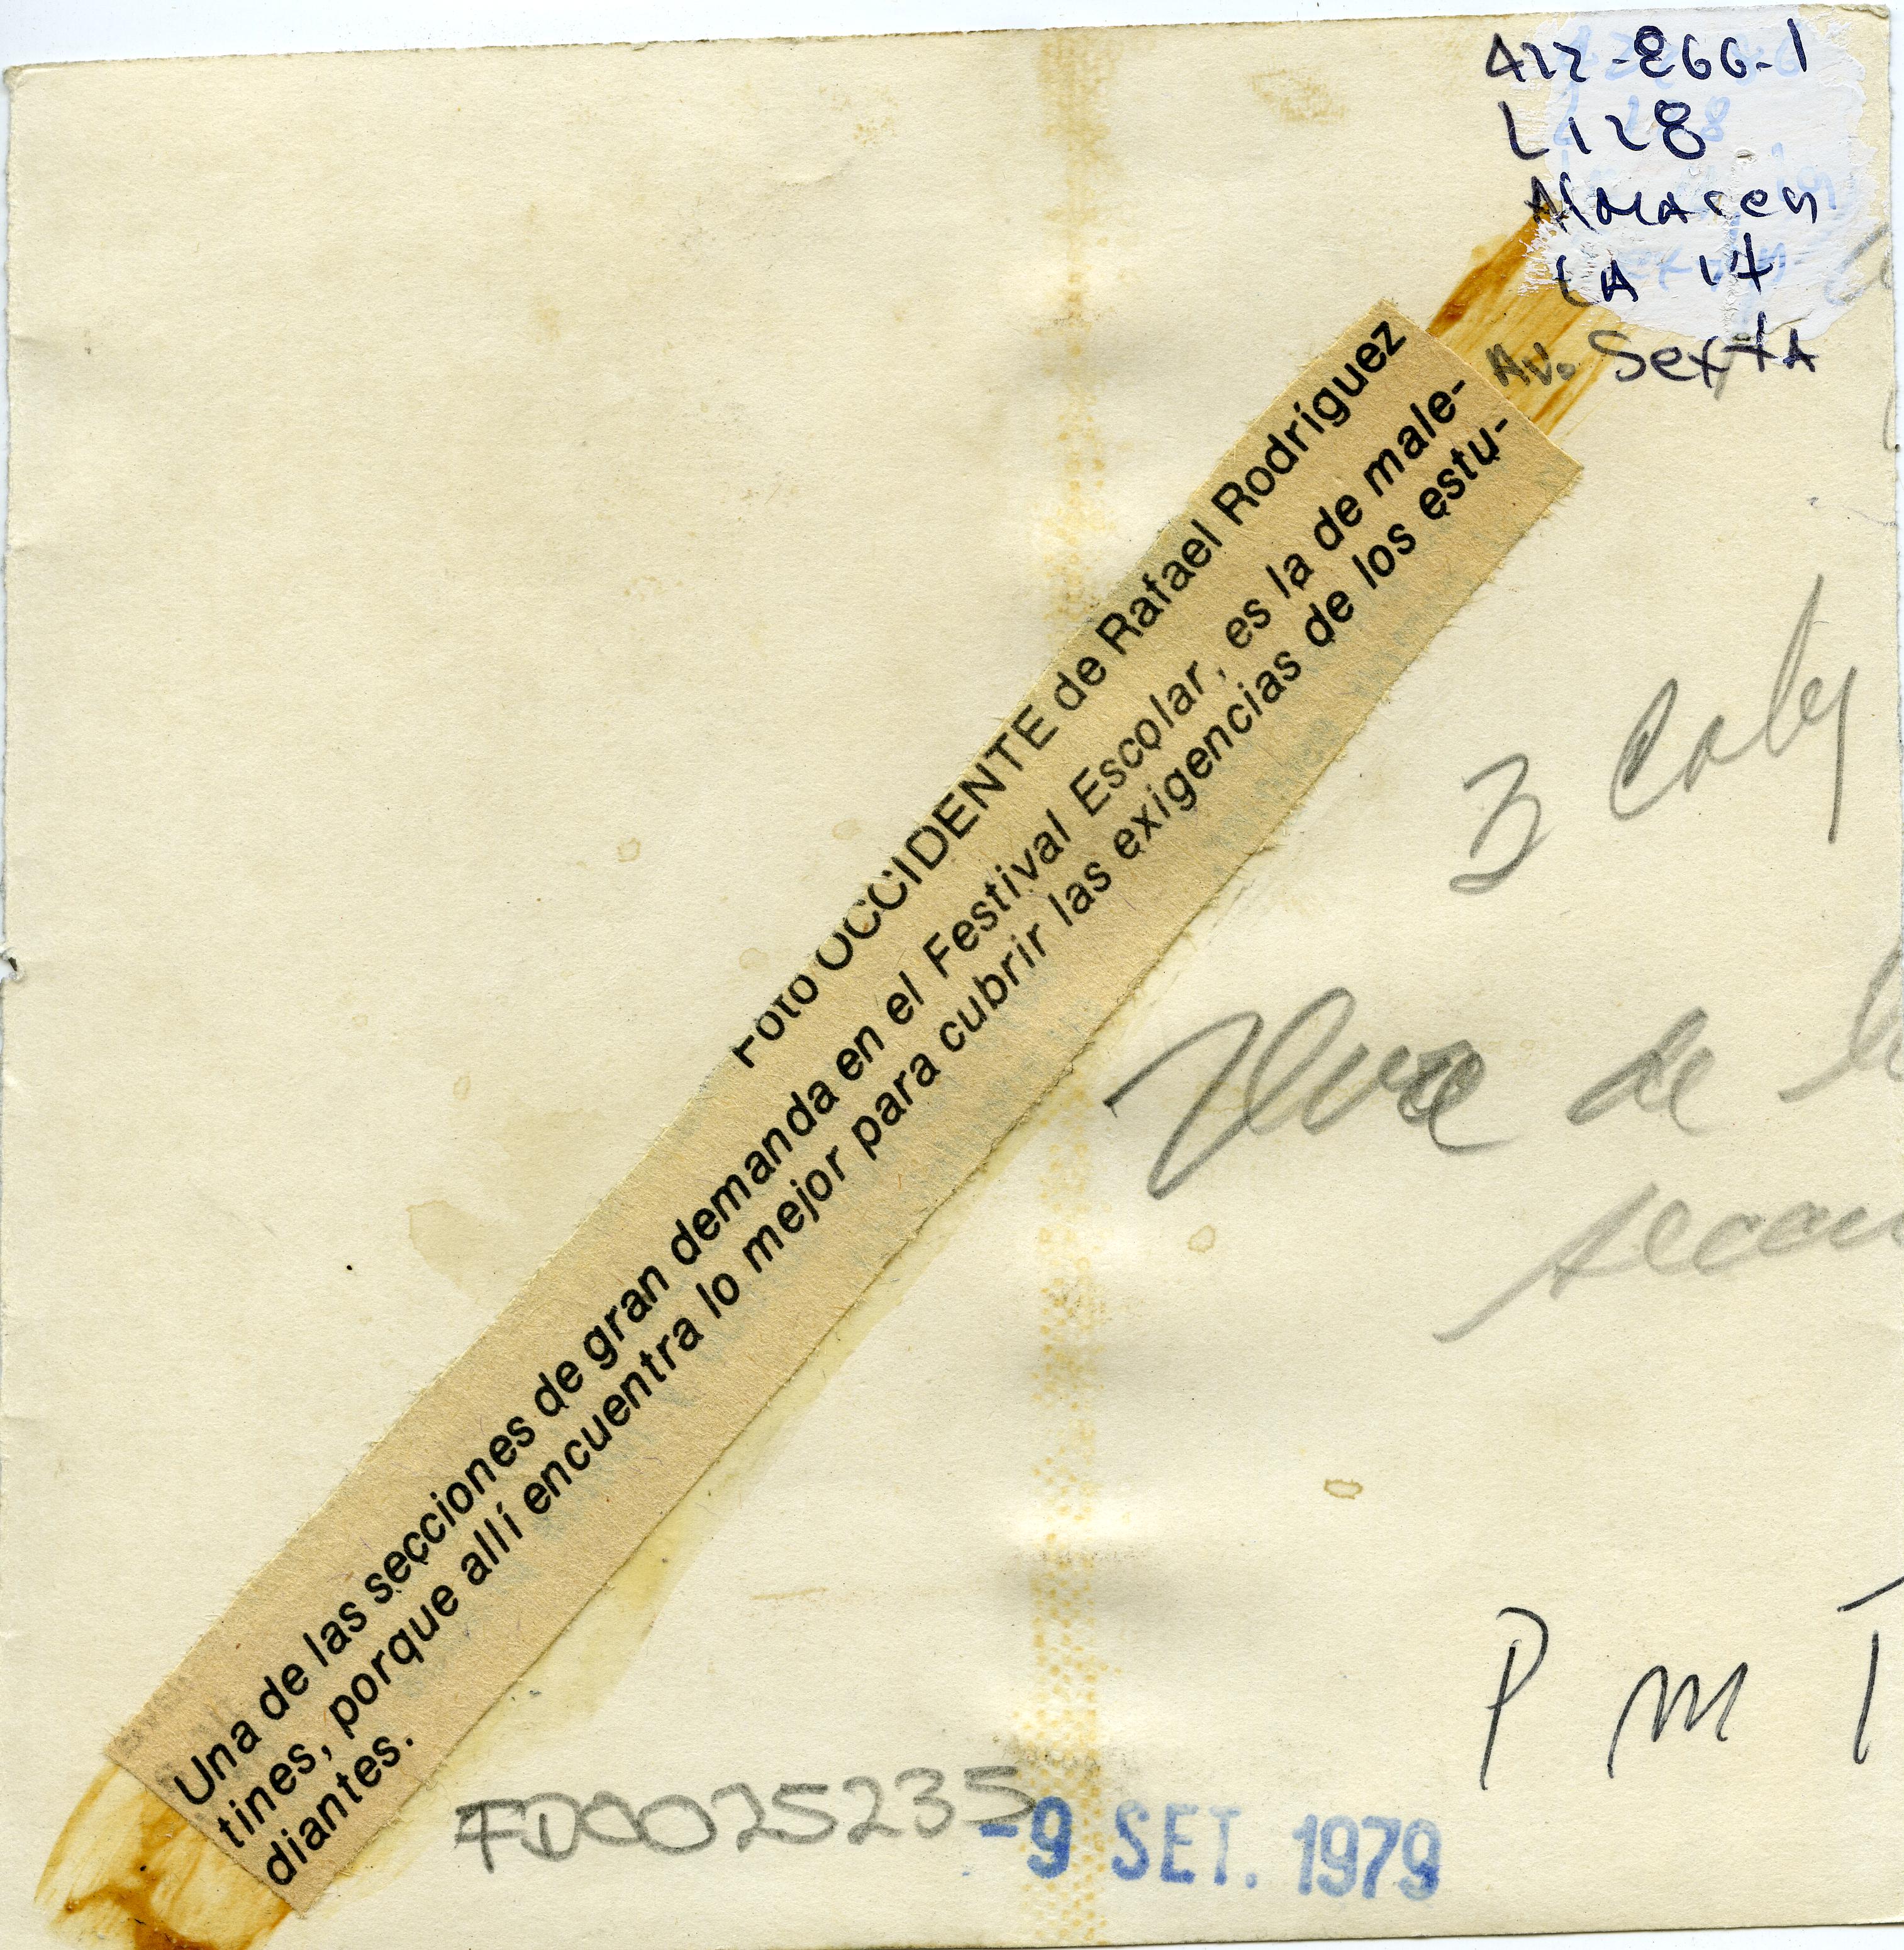 422-866-1
L128
Almacen
LA 14
Av. SextA
Foto OCCIDENTE de Rafael Rodríguez
Una de las secciones de gran demanda en el Festival Escolar, es la de male-
tines, porque allí encuentra lo mejor para cubrir las exigencias de los estu-
diantes.
3
de
P m T
FD0025235
-9 SET. 1979